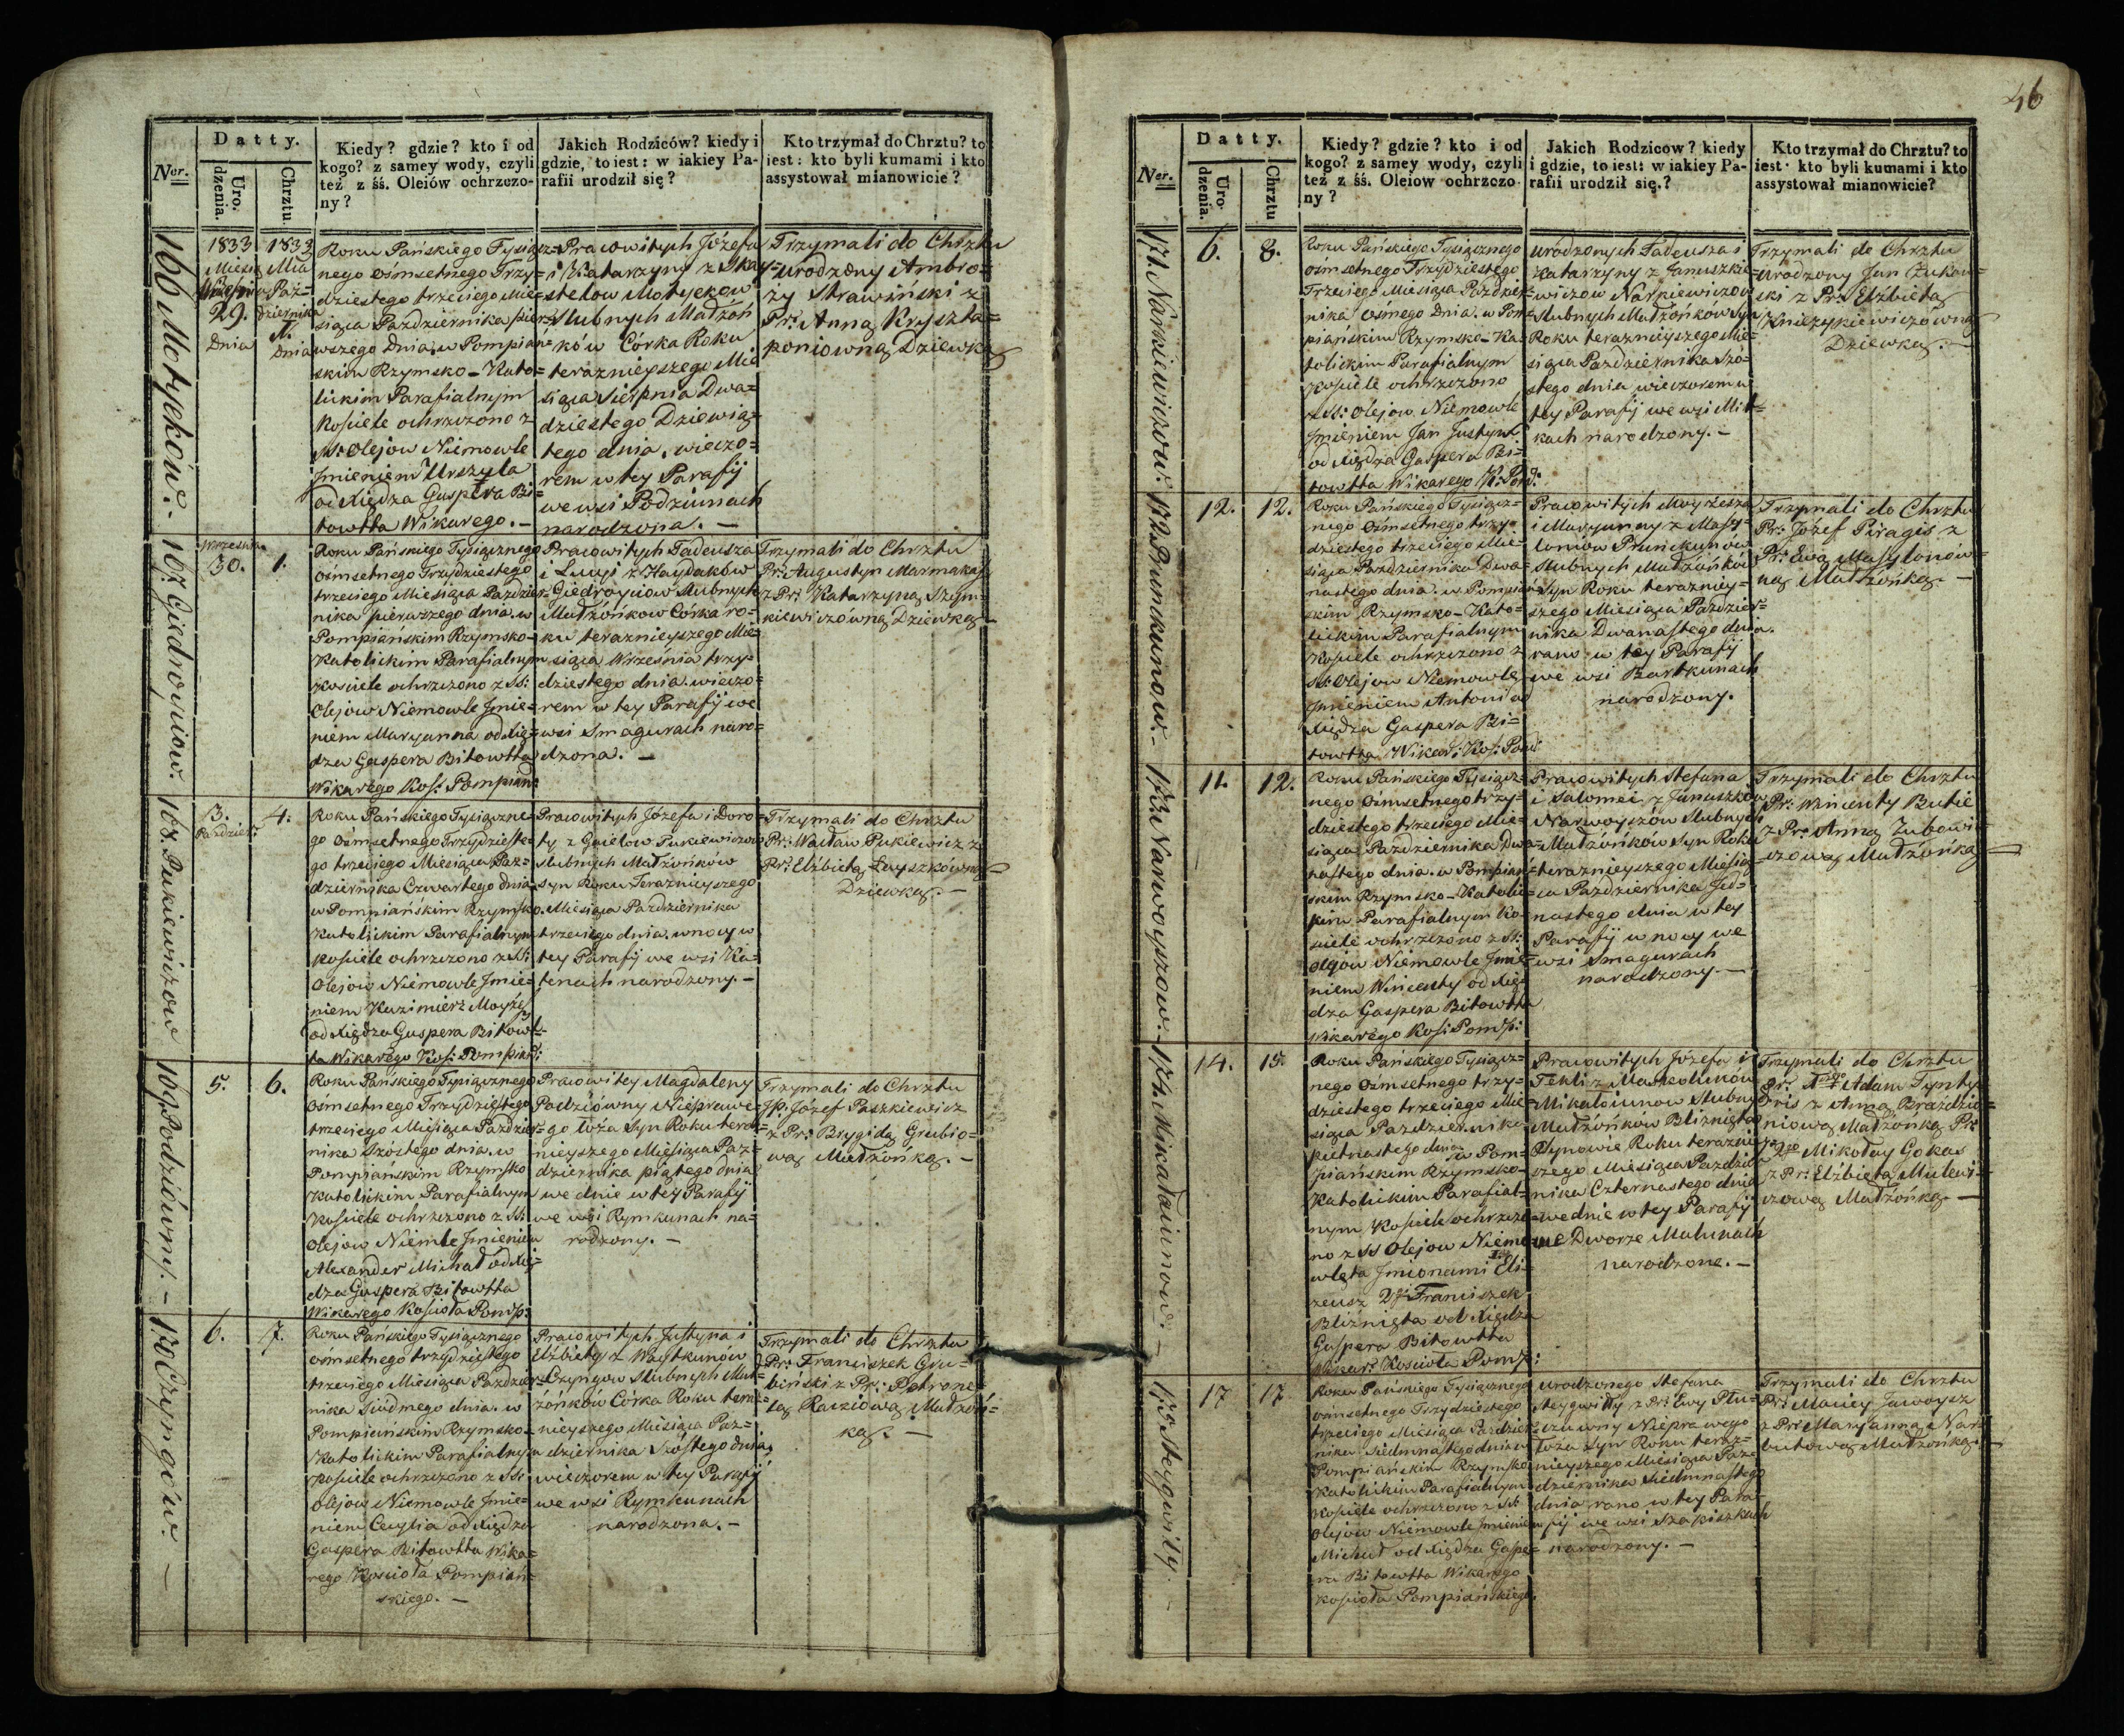 Datty.
Ner.
Uro-
dzenia.
Chrztu
Kiedy? gdzie? kto i od
kogo? z samey wody, czyli
też z śś. Oleiów ochrzczo-
ny?
Jakich Rodziców? kiedy i
gdzie, to iest: w iakiey Pa-
rafii urodził się?
Kto trzymał do Chrztu? to
iest: kto byli kumami i kto
assystował mianowicie?
166 Motyeków.
1833
Września
29.
Dnia
1833
Paź-
dziernika
1.
Dnia
Roku Pańskiego Tysiącz-
nego ośmsetnego Trzy-
dziestego trzeciego Mie-
siąca Pazdziernika pier-
wszego Dnia, w Pompiań-
skim Rzymsko-Kato-
lickim Parafialnym
Kościele ochrzczono z
SS: Olejow Niemowle
Jmieniem Urszula
od Xiędza Gaspera Bi-
towtta Wikarego. –
Pracowitych Józefa
i Katarzyny z Skay-
stelow Motyekow
Slubnych Małżoń-
ków Córka Roku
teraznieyszego Mie-
siąca Sierpnia Dwa-
dziestego Dziewią-
tego dnia, wieczo-
rem w tey Parafij
we wsi Podziunach
narodzona. –
Trzymali do Chrztu
urodzony Ambro-
ży Strawiński z
Pr: Anną Kryszta-
poniowną Dziewką
167 Giedroyciow.
Września
30.
1.
Roku Pańskiego Tysiącznego
ośmsetnego Trzydziestego
trzeciego Miesiąca Pazdzier-
nika pierwszego dnia. w
Pompiańskim Rzymsko-
Katolickim Parafialnym
Kościele ochrzczono z SS:
Olejow Niemowle Jmie-
niem Maryanna od Xię-
dza Gaspera Bitowtta
Wikarego Koś: Pompiań:
Pracowitych Tadeusza
i Lucyi z Haydaków
Giedroyciow Slubnych
Małżonkow Córka ro-
ku teraznieyszego Mie-
siąca Września trzy-
dziestego dnia. wieczo-
rem w tey Parafij we
wsi Smagurach naro-
dzona. –
Trzymali do Chrztu
Pr: Augustyn Marmaka
z Pr: Katarzyną Szym-
kiewiczówną Dziewką
168. Pukiewiczow
3.
Pazdzier:
4.
Roku Pańskiego Tysiączne-
go ośmsetnego Trzydzieste-
go trzeciego Miesiąca Paz-
dziernika Czwartego dnia
w Pompiańskim Rzymsko.
Katolickim Parafialnym
Kościele ochrzczono z SS:
Olejow Niemowle Jmie-
niem Kazimierz Moyżesz
od Xiędza Gaspera Bitowt-
ta Wikarego Koś: Pompiań:
Pracowitych Józefa i Doro-
ty z Gaielow Pukiewiczow
slubnych Małżonków
syn Roku Teraznieyszego
Miesiąca Pazdziernika
trzeciego dnia. w nocy w
tey Parafij we wsi Ka-
tenach narodzony. –
Trzymali do Chrztu
Pr: Wacław Pukiewicz z
Pr: Elżbietą Łayszkówną
Dziewką. –
169 Podziówny. –
5.
6.
Roku Pańskiego Tysiącznego
ośmsetnego Trzydziestego
trzeciego Miesiąca Pazdzier-
nika Szóstego dnia. w
Pompiańskim Rzymsko
Katolickim Parafialnym
Kościele ochrzczono z SS:
Olejow Niemle Jmieniem
Alexander Michał od Xię-
dza Gaspera Bitowtta
Wikarego Kościoła Pomp:
Pracowitey Magdaleny
Podziówny Nieprawe-
go łoża Syn Roku teraz-
nieyszego Miesiąca Paz-
dziernika piątego dnia
we dnie w tey Parafij
we wsi Rymkunach na-
rodzony. –
Trzymali do Chrztu
JP. Józef Paszkiewicz
z Pr: Brygidą Grubio-
wą Małżonką. –
170 Czyngów. –
6.
7.
Roku Pańskiego Tysiącznego
ośmsetnego trzydziestego
trzeciego Miesiąca Pazdzier-
nika Siódmego dnia. w
Pompiańskim Rzymsko-
Katolickim Parafialnym
Kościele ochrzczono z SS:
Olejow Niemowle Jmie-
niem Cecylia od Xiędza
Gaspera Bitowtta Wika-
rego Kościoła Pompiań-
skiego. –
Pracowitych Justyna i
Elżbiety z Waytkunów
Czyngow Slubnych Mał-
żonków Córka Roku teraz-
nieyszego Miesiąca Paz-
dziernika Szóstego dnia,
wieczorem w tey Parafij
we wsi Rymkunach
narodzona. –
Trzymali do Chrztu
Pr: Franciszek Gru-
biński z Pr: Petrone-
lą Raziową Małżoń-
ką. –
46
Datty.
Ner.
Uro-
dzenia.
Chrztu
Kiedy? gdzie? kto i od
kogo? z samey wody, czyli
też z śś. Oleiow ochrzczo-
ny?
Jakich Rodziców? kiedy
i gdzie, to iest: w iakiey Pa-
rafii urodził się.?
Kto trzymał do Chrztu? to
iest: kto byli kumami i kto
assystował mianowicie?
171 Narkiewiczow.
6.
8.
Roku Pańskiego Tysiącznego
ośmsetnego Trzydziestego
Trzeciego Miesiąca Pazdzier-
nika Ośmego Dnia. w Pom-
piańskim Rzymsko-Ka-
tolickim Parafialnym
Kościele ochrzczono
z SS: Olejow Niemowle
Jmieniem Jan Justyn
od Xiędza Gaspera Bi-
towtta Wikarego
urodzonych Tadeusza i
Katarzyny z Januszkie-
wiczow Narkiewiczow
Slubnych Małżonkow Syn
Roku teraznieyszego Mie-
siąca Pazdziernika Szó-
stego dnia wieczorem w
tey Parafij we wsi Mit-
kach narodzony. –
Trzymali do Chrztu
Urodzony Jan Żukow-
ski z Pr: Elżbietą
Kniezykiewiczówną
Dziewką. –
172 Prunkunow. –
12.
12.
Roku Pańskiego Tysiącz-
nego ośmsetnego trzy-
dziestego trzeciego Mie-
siąca Pazdziernika Dwu-
nastego dnia. w Pompiań-
skim Rzymsko-Kato-
lickim Parafialnym
Kościele ochrzczono z
SS: Olejow Niemowle
Jmieniem Antoni od
Xiędza Gaspera Bi-
towtta Wikar: Koś: Pom:
Pracowitych Moyżesza
i Maryanny z Masy-
loniów Prunckunów
slubnych Małżonków
Syn Roku terazniey-
szego Miesiąca Pazdzier-
nika Dwanastego dnia.
rano w tey Parafij
we wsi Bartkunach
narodzony.
Trzymali do Chrztu
Pr: Józef Piragis z
Pr: Ewą Masylonów-
ną Małżonką. –
173 Narwoyszow. –
11.
12.
Roku Pańskiego Tysiącz-
nego Ośmsetnego trzy-
dziestego trzeciego Mie-
siąca Pazdziernika Dwu-
nastego dnia. w Pompiań-
skim Rzymsko-Katolic-
kim Parafialnym Ko-
ściele ochrzczono z SS:
Olejow Niemowle Jmie-
niem Wincenty od Xię-
dza Gaspera Bitowtta
Wikarego Koś: Pomp:
Pracowitych Stefana
i Salomei z Januszków
Narwoyszów Slubnych
Małżonków Syn Roku
teraznieyszego Miesią-
ca Pazdziernika Jed-
nastego dnia w tey
Parafij w nocy we
wsi Smagurach
narodzony. –
Trzymali do Chrztu
Pr: Wincenty Butie
z Pr: Anną Zubowi-
czową Małżonką –
174. Mikałaiunow. –
14.
15.
Roku Pańskiego Tysiącz-
nego Ośmsetnego trzy-
dziestego trzeciego Mie-
siąca Pazdziernika
pietnastego dnia w Pom-
piańskim Rzymsko-
Katolickim Parafial-
nym Kościele ochrzczo-
no z SS Olejow Niemo-
wlęta Jmionami Eli-
zeusz 2gi Franciszek
Bliznięta od Xiędza
Gaspera Bitowtta
Wikar: Kościoła Pomp:
Pracowitych Józefa i
Tekli z Mateolunów
Mikałaiunow Slubnych
Małżonków Bliznięta
Synowie Roku teraznie-
szego Miesiąca Pazdzier-
nika Czternastego dnia
we dnie w tey Parafij
we Dworze Malunach
narodzone. –
Trzymali do Chrztu
Pr: 1go Adam Tynty-
ris z Anną Brazdzio-
niową Małżonką Pr:
2go Mikołay Gokas
z Pr: Elżbietą Mulewi-
czową Małżonką. –
175 Steygwiły. –
17
17
Roku Pańskiego Tysiącznego
ośmsetnego Trzydziestego
trzeciego Miesiąca Pazdzier-
nika Siedmnastego dnia w
Pompiańskim Rzymsko
Katolickim Parafialnym
Kościele ochrzczono z SS:
Olejow Niemowle Jmieniem
Michał od Xiędza Gaspe-
ra Bitowtta Wikarego
Kościoła Pompiańskiego.
urodzonego Stefana
Steygwiłły z Pr: Ewy Płu-
szczewny Nieprawego
łoża Syn Roku teraz-
nieyszego Miesiąca Paz-
dziernika Siedmnastego
dnia rano w tey Para-
fij we wsi Szapiszkach
narodzony. –
Trzymali do Chrztu
Pr: Maciey Jawoysz
z Pr: Maryanną Nar-
butową Małżonką. –